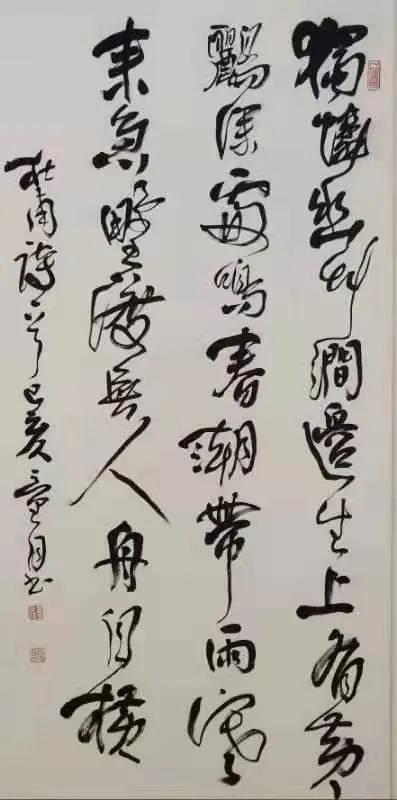 獨憐幽草澗邊生上有黃
鸝深處鳴春潮帶雨晚
來急野渡無人舟自橫
杜甫詩一首己亥月书